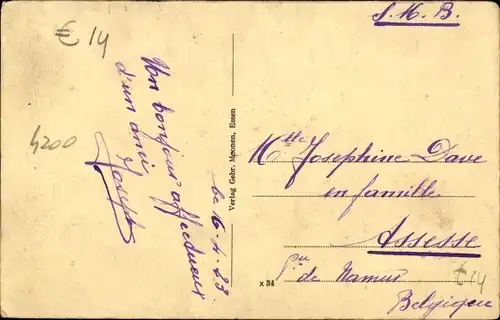 € 14
S. M. B.
4200
Un bonjour affectueux
d'un ami
Joseph
le 16-4-23.
Verlag Gebr. Moonen, Essen
x 34
Mlle Josephine Dave
en famille
Assesse
Pce de Namur
Belgique
€ 14